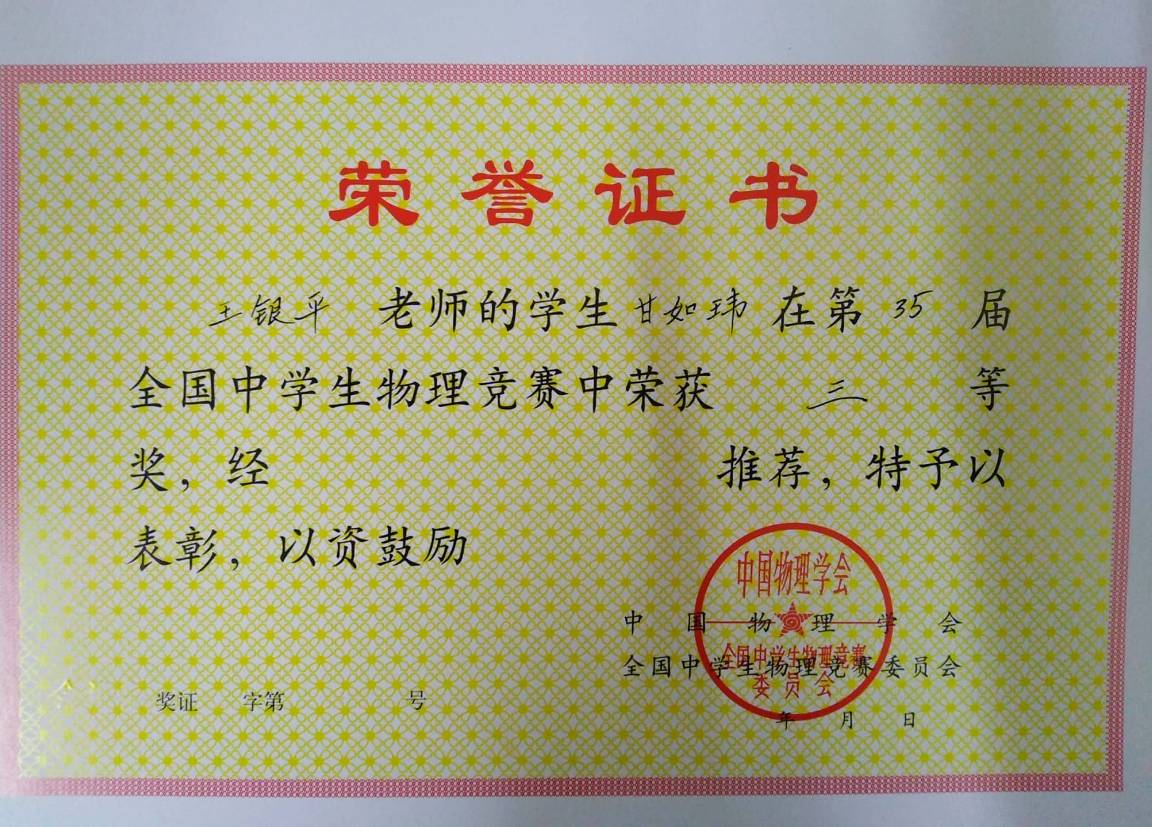 荣誉证书
王银平 老师的学生 甘如玮 在第 35 届
全国中学生物理竞赛中荣获 三 等
奖，经 推荐，特予以
表彰，以资鼓励
中国物理学会
中国物理学会
全国中学生物理竞赛委员会
全国中学生物理竞赛
委员会
奖证 字第 号
年 月 日